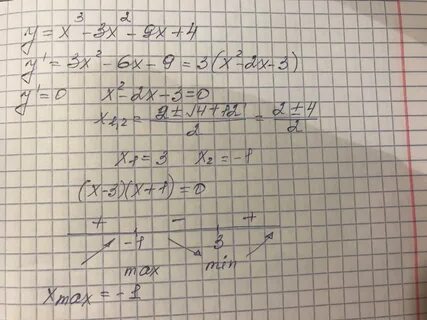 y = x³ - 3x² - 9x + 4
y' = 3x² - 6x - 9 = 3(x² - 2x - 3)
y' = 0 x² - 2x - 3 = 0
x₁,₂ = (2 ± √(4 + 12))/2 = (2 ± 4)/2
x₁ = 3 x₂ = -1
(x - 3)(x + 1) = 0
+ - +
-1 3
max min
x max = -1